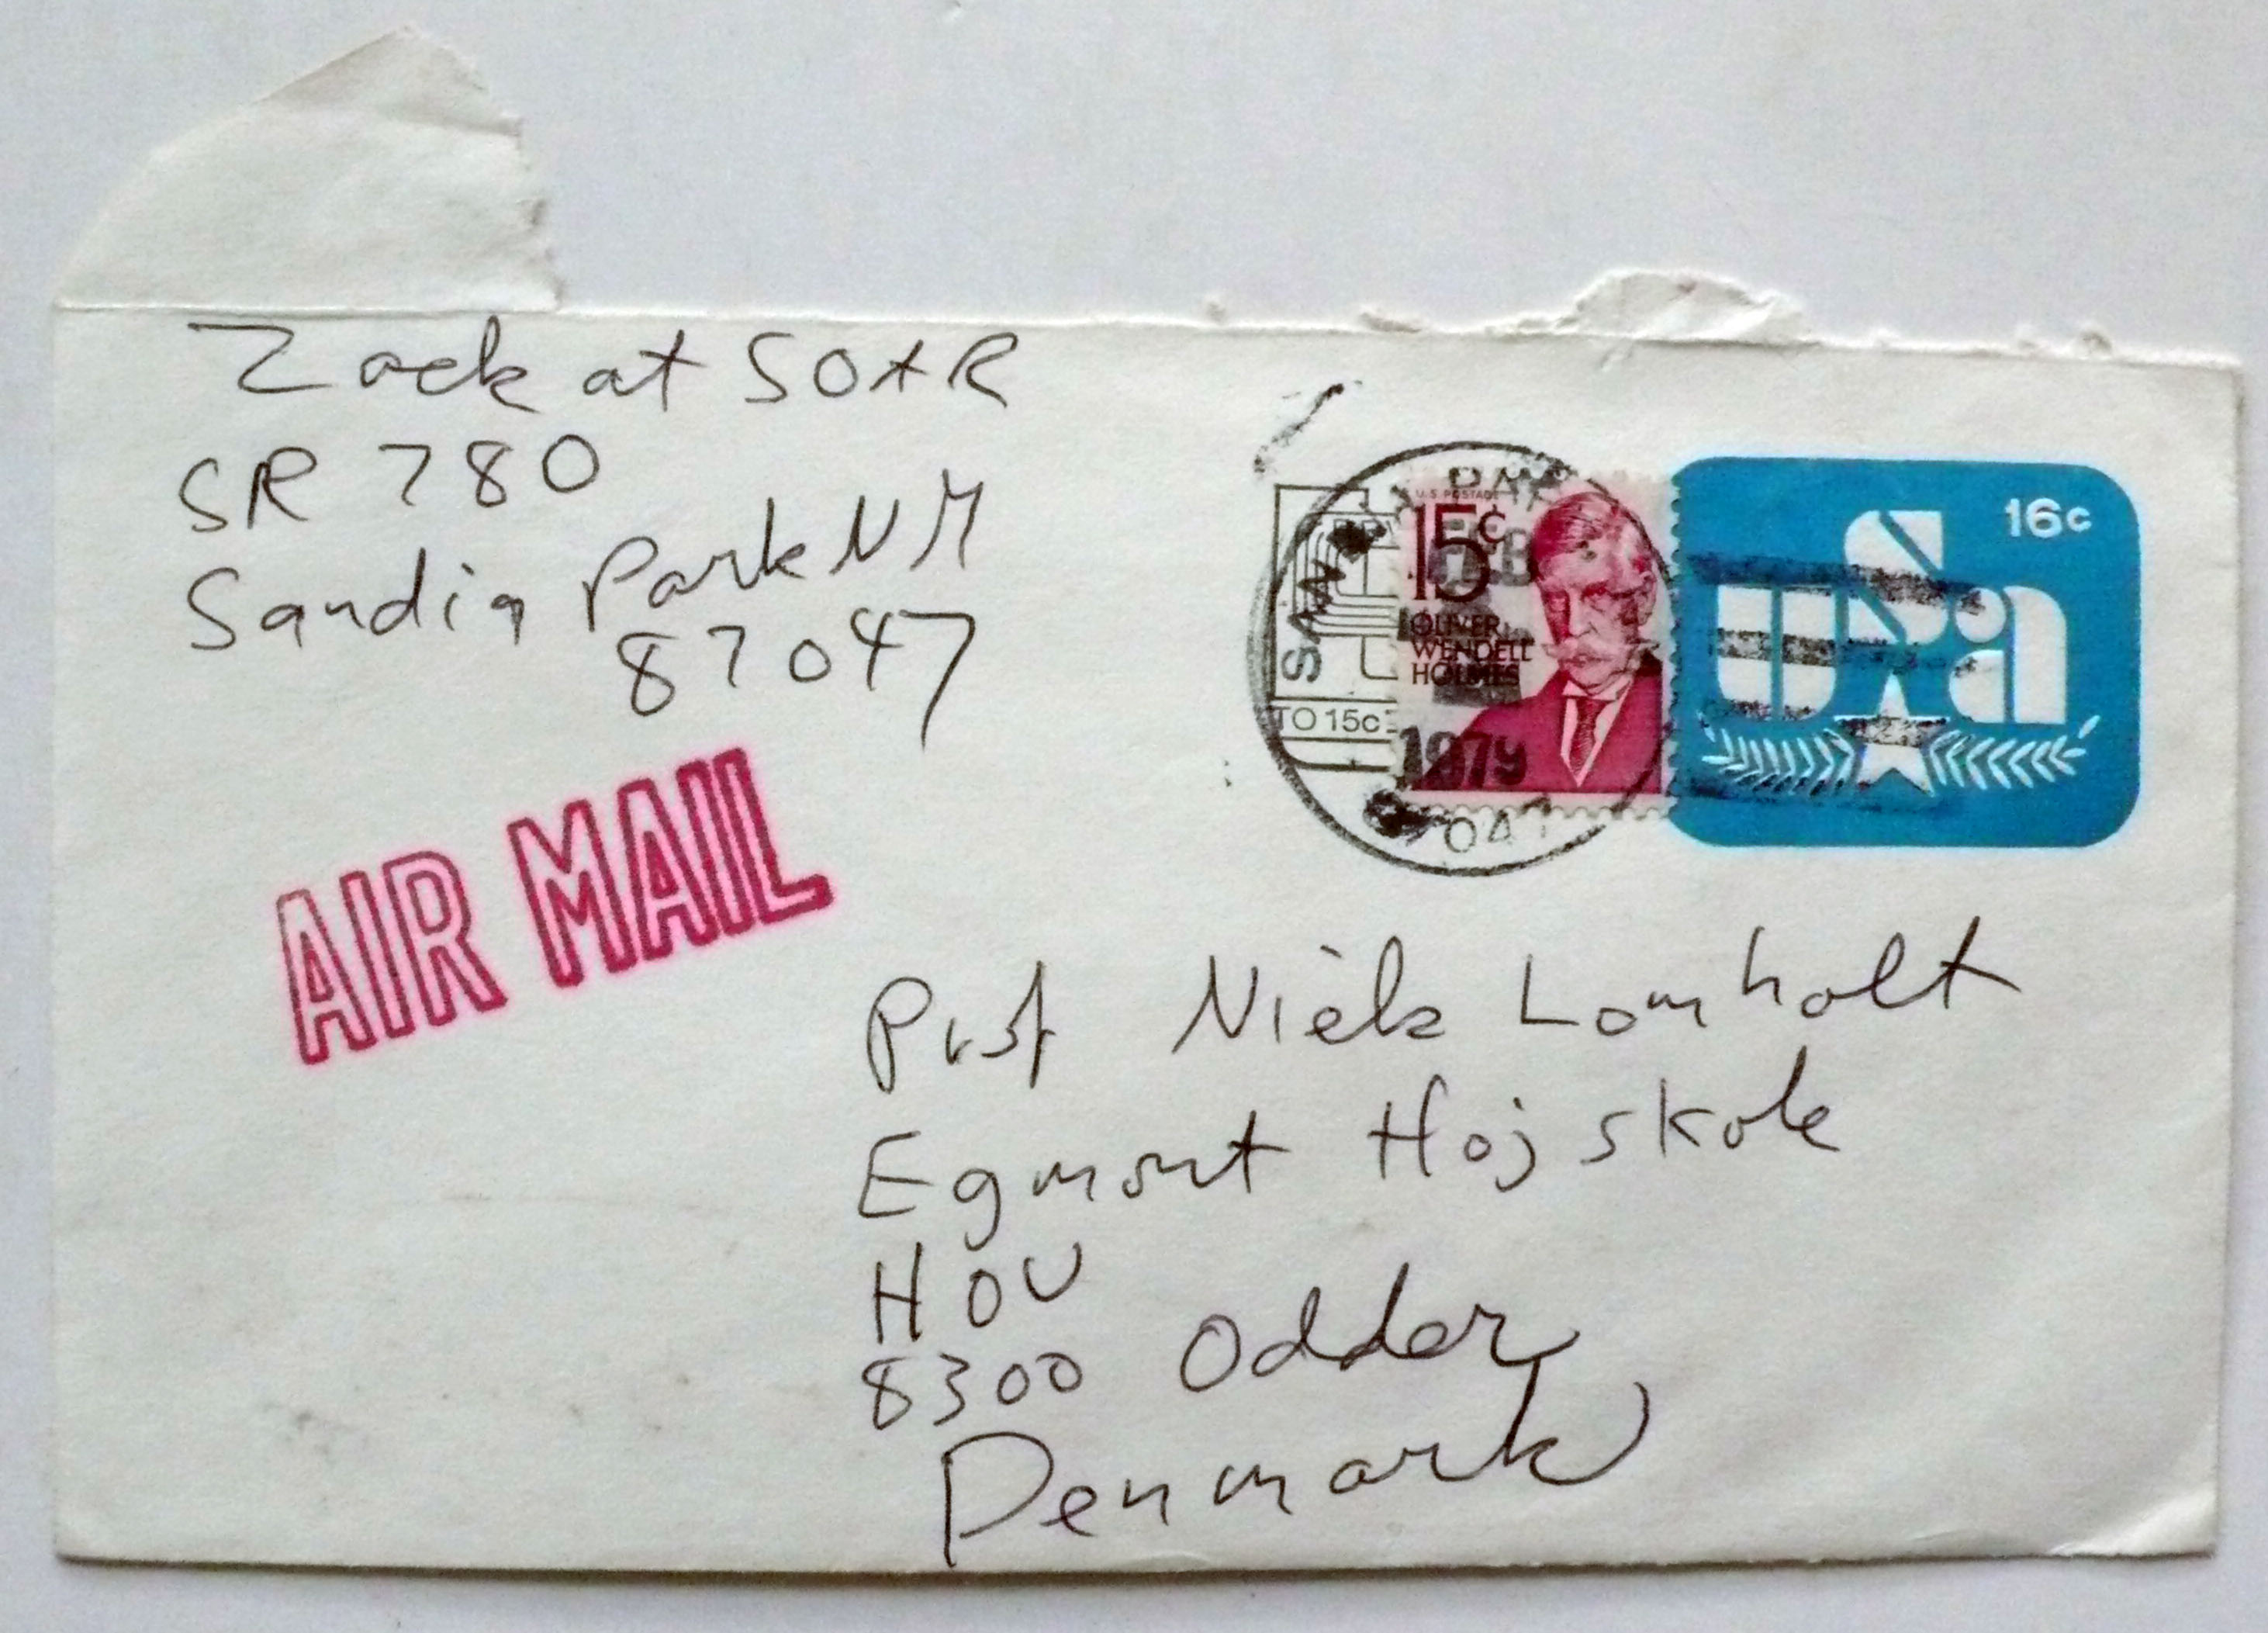 Zack at SOAR
SR 780
Sandia Park NM
87047
AIR MAIL
U.S. POSTAGE
15¢
OLIVER
WENDELL
HOLMES
TO 15c
FEB
1979
16c
usa
Prof Niels Lomholt
Egmont Hojskole
HOU
8300 Odder
Denmark